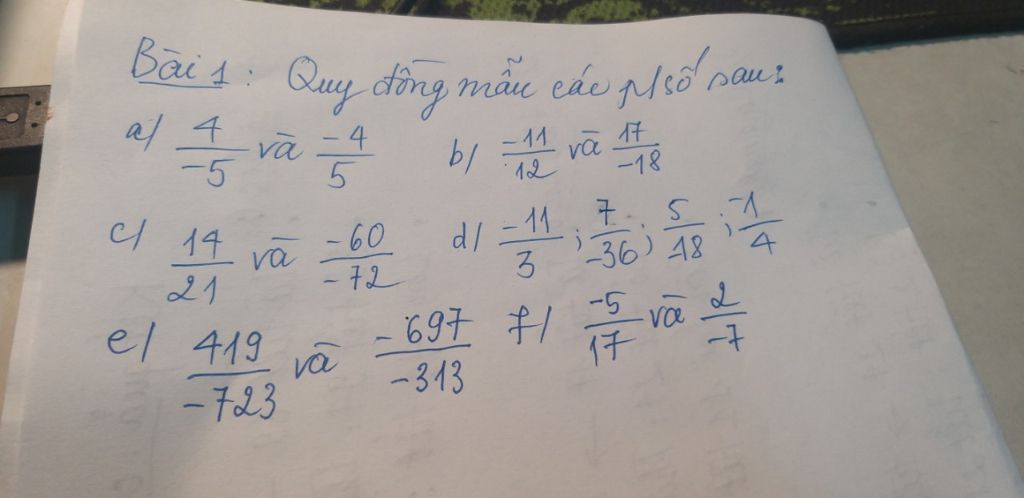 Bài 1: Quy đồng mẫu các p/số sau:
a/ 4/-5 và -4/5 b/ -11/12 và 17/-18
c/ 14/21 và -60/-72 d/ -11/3; 7/-36; 5/-18; -1/4
e/ 419/-723 và -697/-313 f/ -5/17 và 2/-7